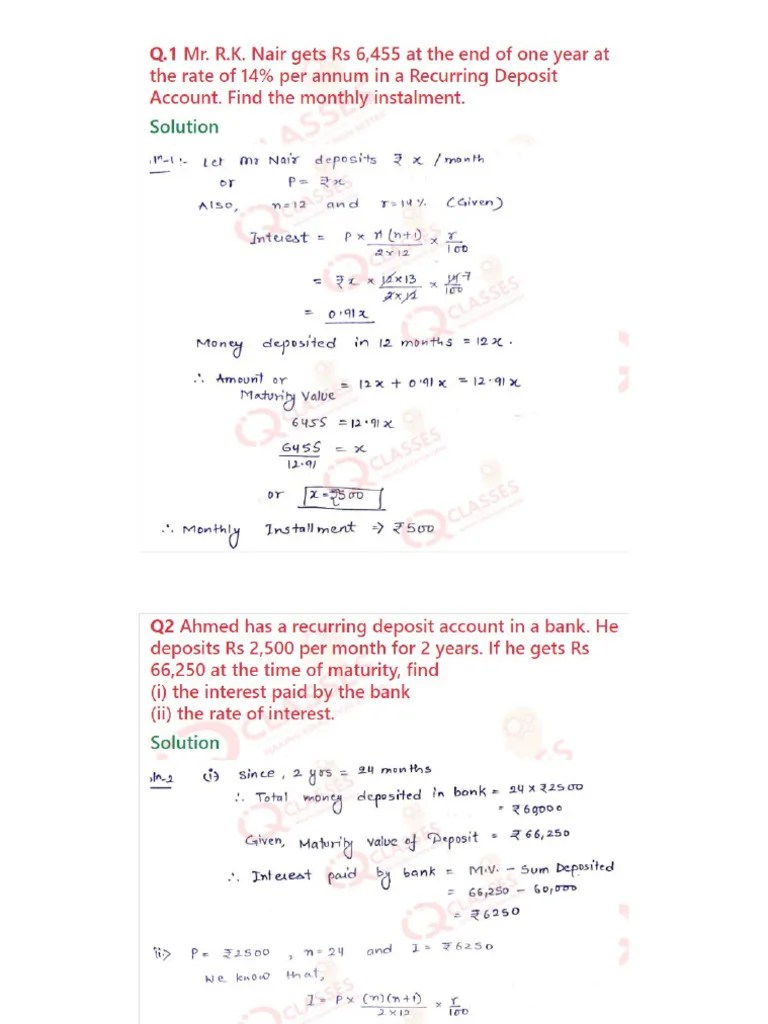 Q.1 Mr. R.K. Nair gets Rs 6,455 at the end of one year at
the rate of 14% per annum in a Recurring Deposit
Account. Find the monthly instalment.
Solution
Let Mr Nair deposits ₹ x / month
or P = ₹x
Also, n=12 and r=14% (Given)
Interest = P × n(n+1)/2×12 × r/100
= ₹x × 12×13/2×12 × 14 7/100
= 0.91x
Money deposited in 12 months = 12x.
∴ Amount or
Maturity Value = 12x + 0.91x = 12.91x
6455 = 12.91x
6455/12.91 = x
or x = ₹500
∴ Monthly Installment ⇒ ₹500
Q CLASSES
Q2 Ahmed has a recurring deposit account in a bank. He
deposits Rs 2,500 per month for 2 years. If he gets Rs
66,250 at the time of maturity, find
(i) the interest paid by the bank
(ii) the rate of interest.
Solution
(i) Since, 2 yrs = 24 months
∴ Total money deposited in bank = 24 × ₹2500
= ₹60000
Given, Maturity value of Deposit = ₹ 66,250
∴ Interest paid by bank = M.V. – Sum Deposited
= 66,250 – 60,000
= ₹6250
ii:> P = ₹2500 , n=24 and I = ₹6250
We know that,
I = P× (n)(n+1)/2×12 × r/100